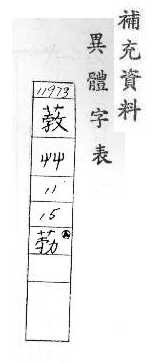 補充資料
異體字表
11973
艸
11
15